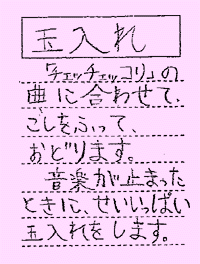 玉入れ
「チェッチェッコリ」の
曲に合わせて、
こしをふって、
おどります。
音楽が止まった
ときに、せいいっぱい
玉入れをします。